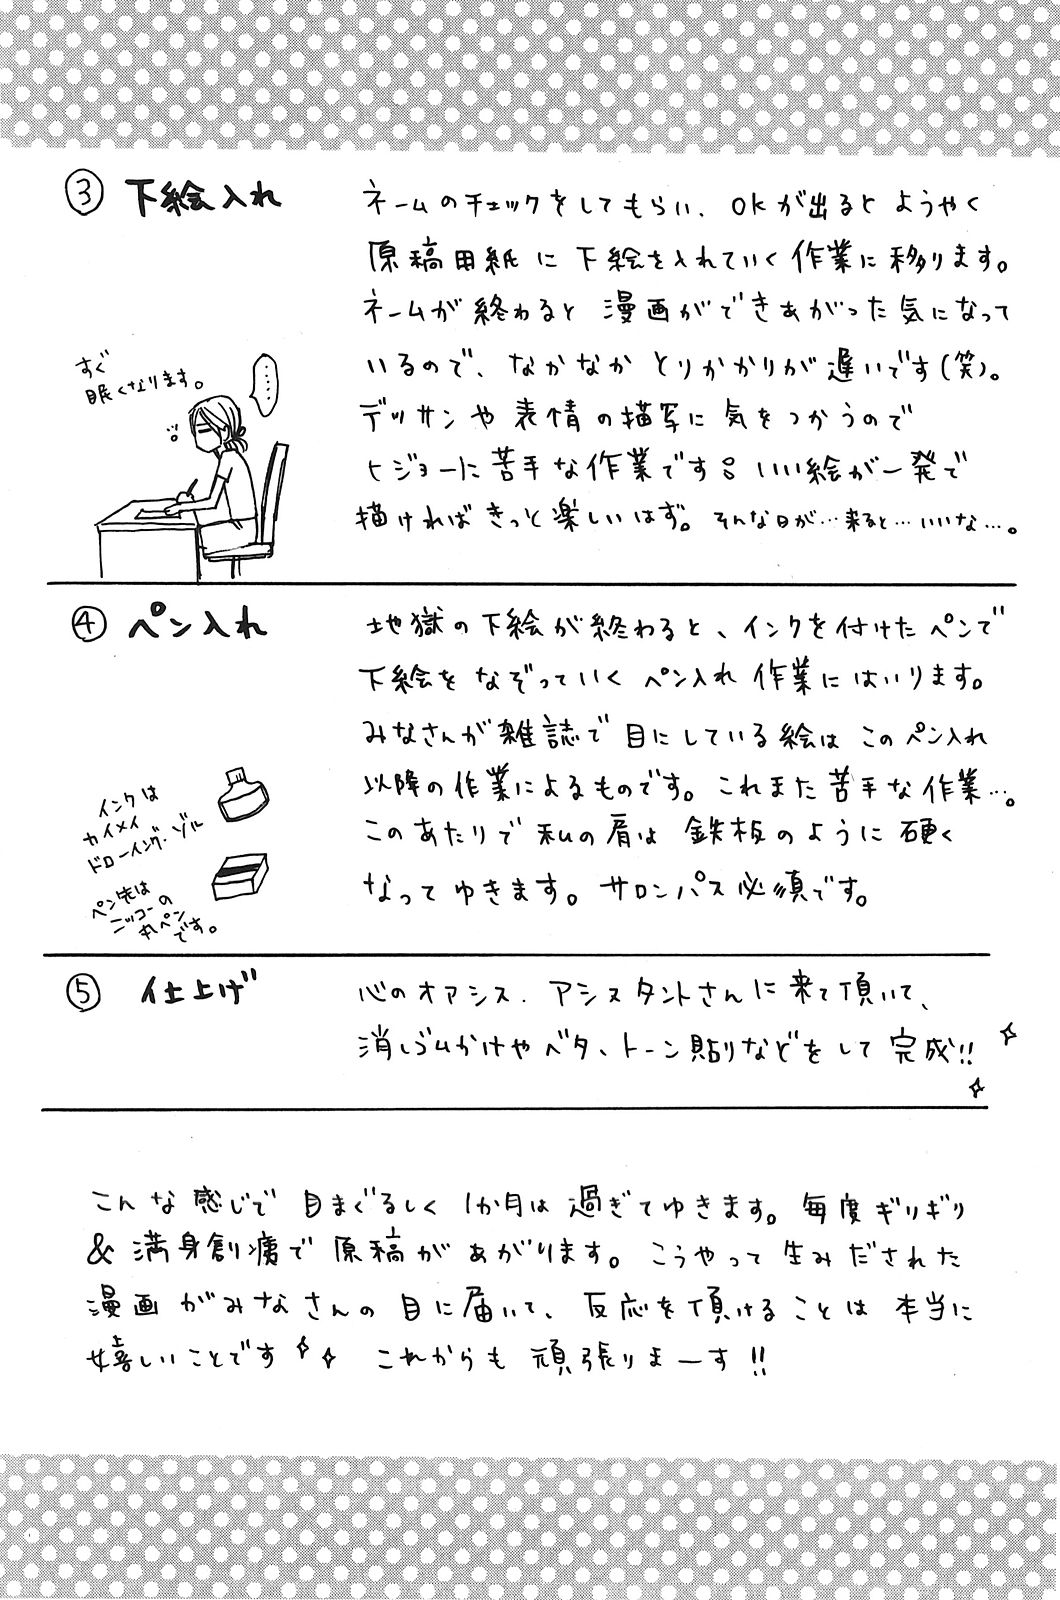 ③ 下絵入れ
ネームのチェックをしてもらい、OKが出るとようやく
原稿用紙に下絵を入れていく作業に移ります。
ネームが終わると漫画ができあがった気になって
いるので、なかなかとりかかりが遅いです(笑)。
デッサンや表情の描写に気をつかうので
ヒジョーに苦手な作業です。いい絵が一発で
描ければきっと楽しいはず。そんな日が…来ると…いいな…。
すぐ
眠くなります。
……
④ ペン入れ
地獄の下絵が終わると、インクを付けたペンで
下絵をなぞっていくペン入れ作業にはいります。
みなさんが雑誌で目にしている絵はこのペン入れ
以降の作業によるものです。これまた苦手な作業…。
このあたりで私の肩は鉄板のように硬く
なってゆきます。サロンパス必須です。
インクは
カイメイ
ドローイング・ゾル
ペン先は
ニッコーの
丸ペン
です。
⑤ 仕上げ
心のオアシス、アシスタントさんに来て頂いて、
消しゴムかけやベタ、トーン貼りなどをして完成!!
こんな感じで目まぐるしく1か月は過ぎてゆきます。毎度ギリギリ
&満身創痍で原稿があがります。こうやって生みだされた
漫画がみなさんの目に届いて、反応を頂けることは本当に
嬉しいことです これからも頑張りまーす!!